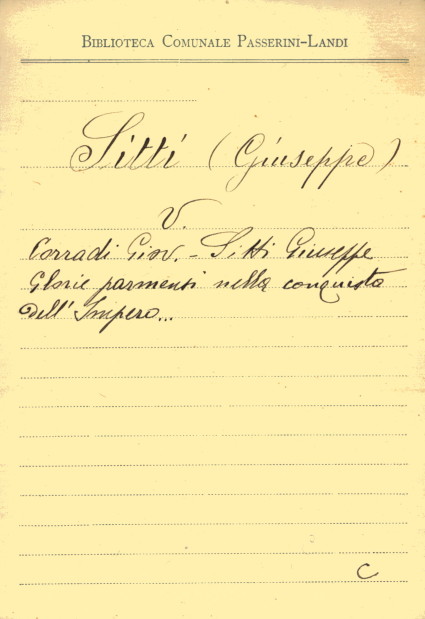 BIBLIOTECA COMUNALE PASSERINI-LANDI
Sitti (Giuseppe)
V.
Corradi Giov. - Sitti Giuseppe
Glorie parmensi nella conquista
dell'Impero...
C